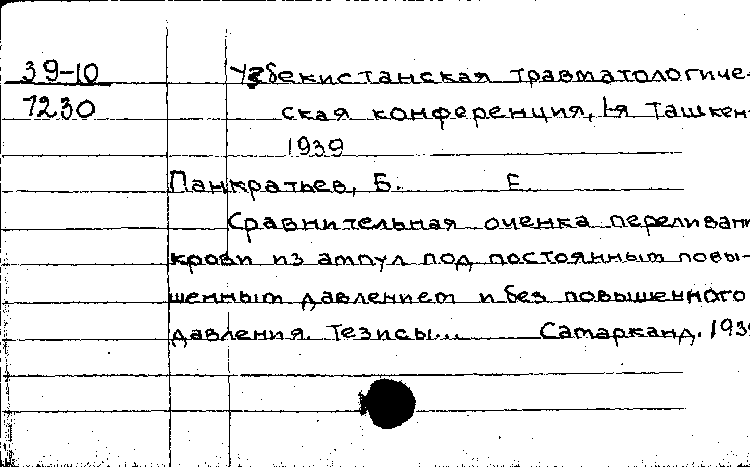 39-10 Узбекистанская травматологиче-
7230 ская конференция, 1-я Ташкен
1939
Панкратьев, Б. Е.
Сравнительная оценка переливан
крови из ампул под постоянным повы-
шенным давлением и без повышенного
давления. Тезисы... Самарканд. 1939